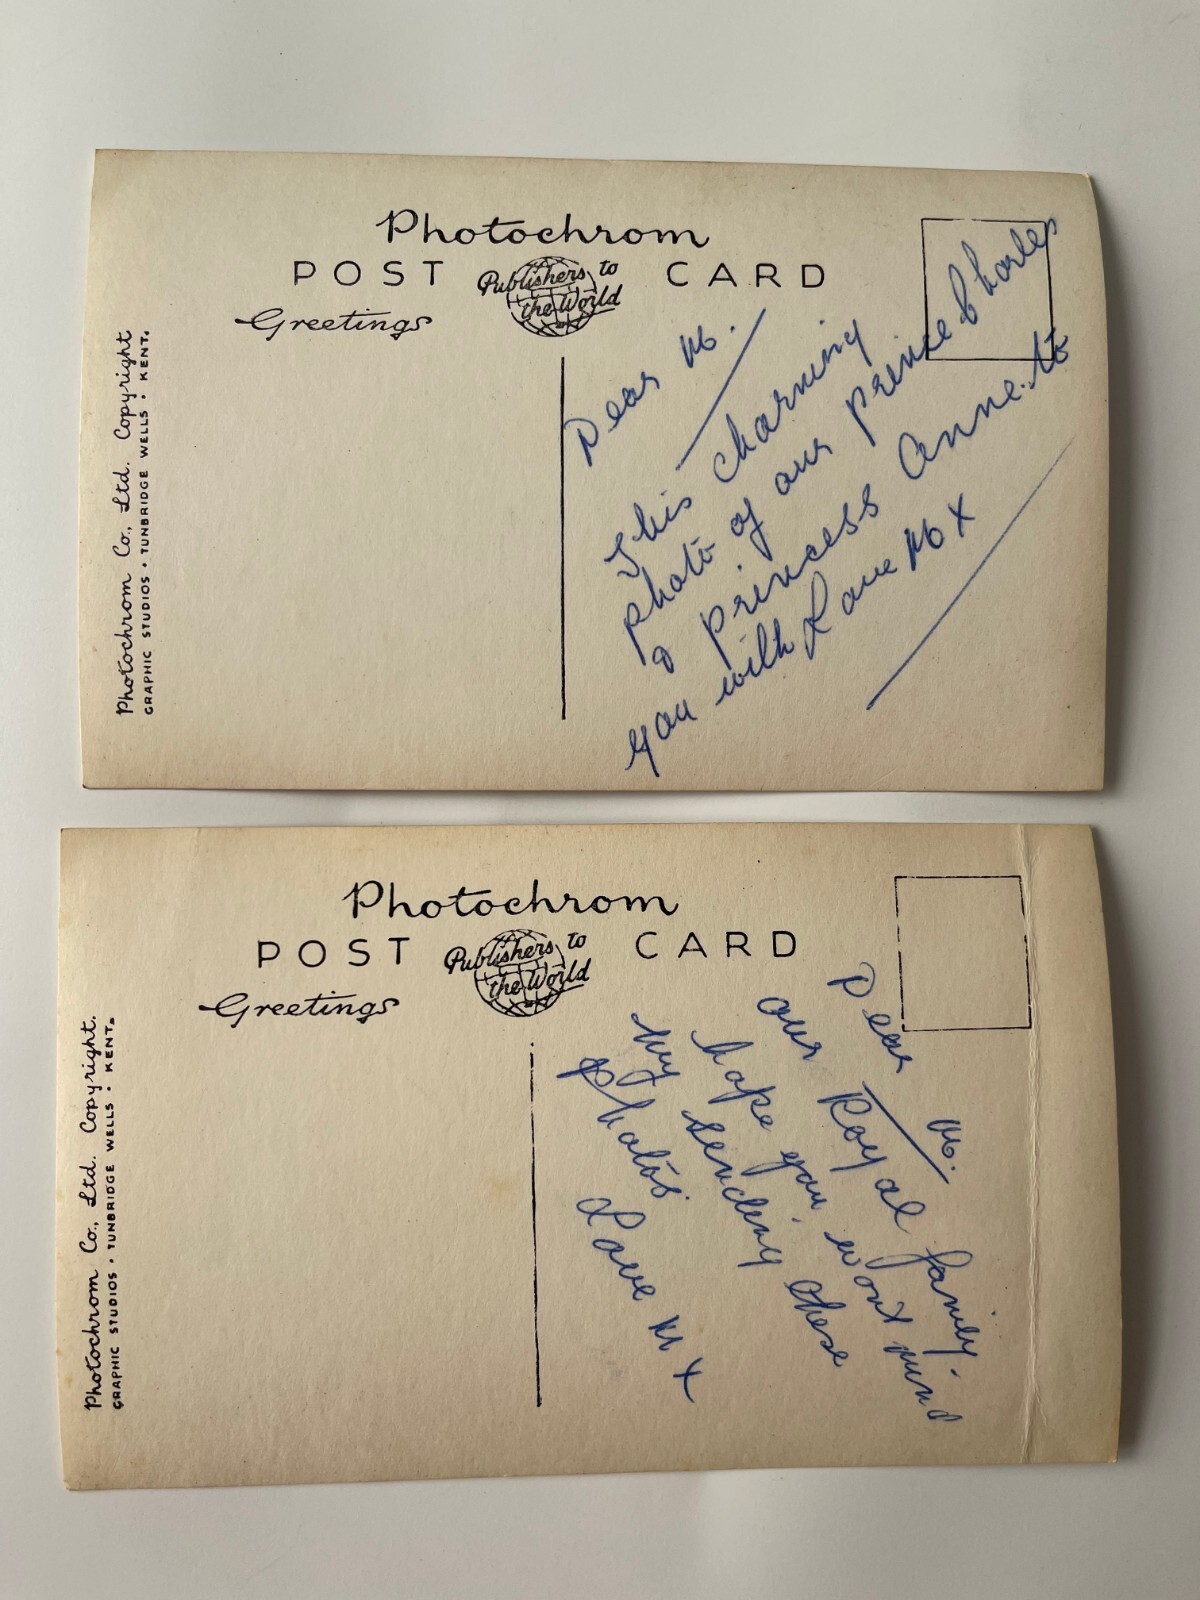 Photochrom
POST CARD
Publishers to
the World
Greetings
Photochrom Co., Ltd. Copyright
GRAPHIC STUDIOS • TUNBRIDGE WELLS • KENT.
Dear M.
This charming
photo of our Prince Charles
& Princess Anne. to
you with Love M x
Photochrom
POST CARD
Publishers to
the World
Greetings
Photochrom Co., Ltd. Copyright.
GRAPHIC STUDIOS • TUNBRIDGE WELLS • KENT.
Dear M.
our Royal family.
hope you wont mind
my sending these
photos
Love M x